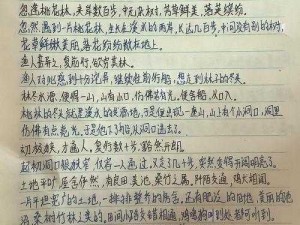 忽逢桃花林，夹岸数百步，中无杂树，芳草鲜美，落英缤纷
忽然遇到一片桃花林，生长在溪流的两岸，长达几百步，中间没有别的树，
花草鲜嫩美丽，落花纷纷散在地上。
渔人甚异之，复前行，欲穷其林。
渔人对此感到十分诧异，继续往前行船，想走到林子的尽头。
林尽水源，便得一山，山有小口，仿佛若有光，便舍船，从口入。
桃林的尽头就是溪水的发源地，于是便出现一座山，山上有个小洞口，洞里
仿佛有点亮光。于是他下了船，从洞口进去了。
初极狭，才通人，复行数十步，豁然开朗
起初洞口很狭窄，仅容一人通过，又走了几十步，突然变得开阔明亮了。
土地平旷，屋舍俨然，有良田美池，桑竹之属，阡陌交通，鸡犬相闻。
一片平坦宽广的土地，一排排整齐的房舍，还有肥沃的田地，美丽的池
沼，桑树竹林之类的，田间小路交错相通，鸡鸣狗叫到处都可听到。